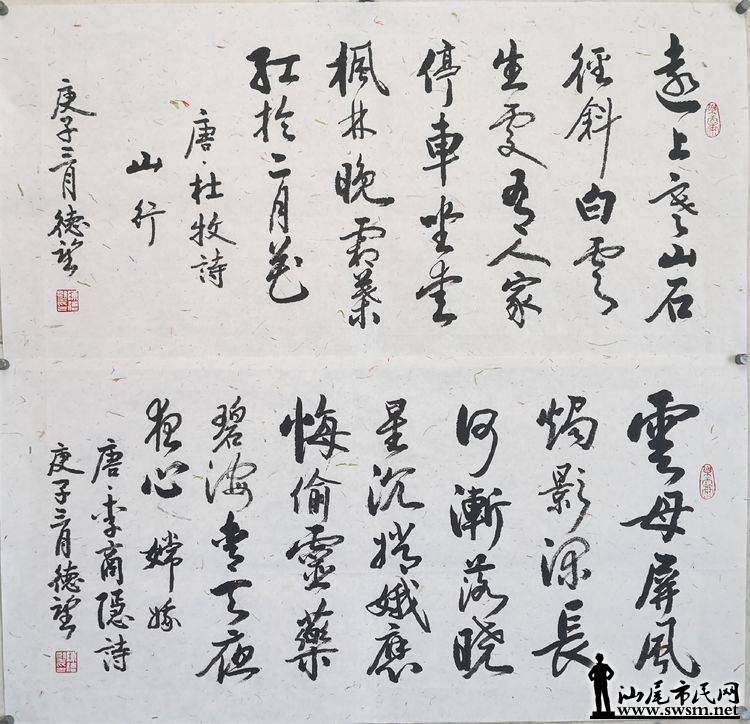 遠上寒山石
徑斜白雲
生處有人家
停車坐愛
楓林晚霜葉
紅於二月花
唐·杜牧詩
山行
庚子三月德望
雲母屏風
燭影深長
河漸落曉
星沉嫦娥應
悔偷靈藥
碧海青天夜
夜心 嫦娥
唐·李商隱詩
庚子三月德望
汕尾市民网
www.swsm.net